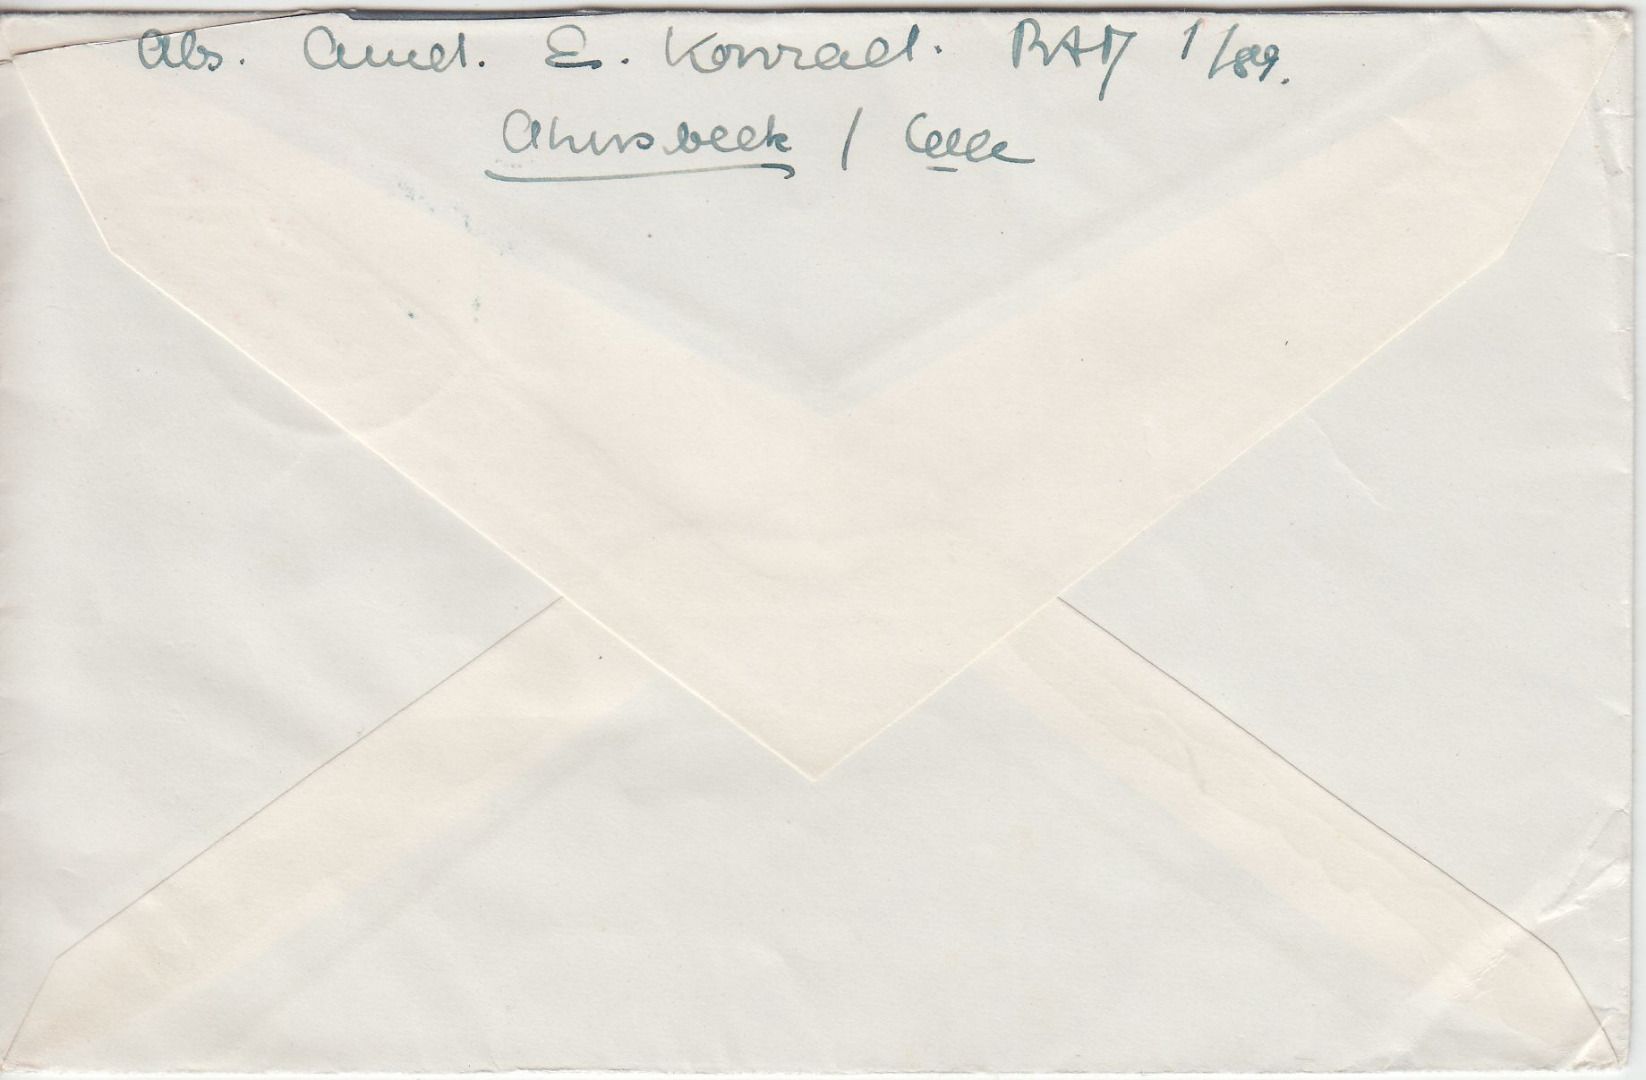 Abs. E. Konrad. RAD 1/89.
Ahnsbeck / Celle